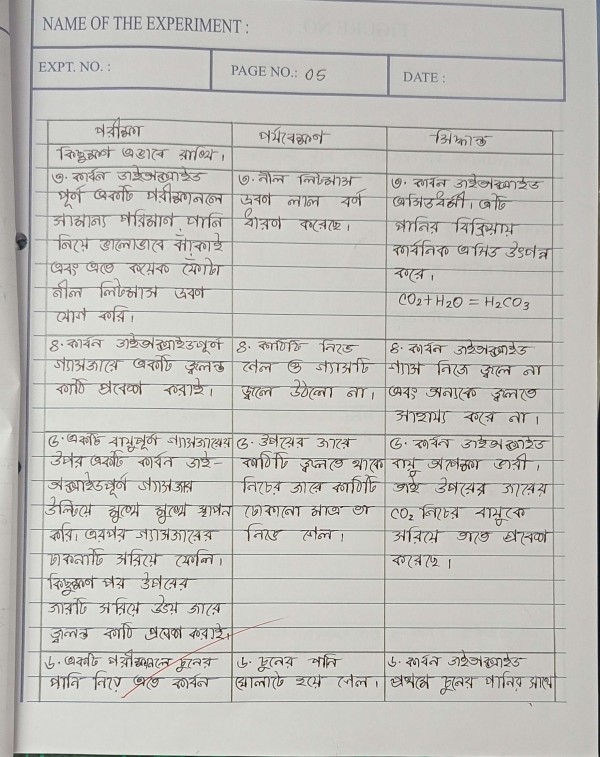 NAME OF THE EXPERIMENT :
EXPT. NO. :
PAGE NO.: 05
DATE :
পরীক্ষা
পর্যবেক্ষণ
সিদ্ধান্ত
কিছুক্ষণ এভাবে রাখি।
৩. কার্বন ডাইঅক্সাইড
পূর্ণ একটি পরীক্ষানলে
সামান্য পরিমাণ পানি
নিয়ে ভালোভাবে ঝাঁকাই
এবং এতে কয়েক ফোঁটা
নীল লিটমাস দ্রবণ
যোগ করি।
৩. নীল লিটমাস
দ্রবণ লাল বর্ণ
ধারণ করেছে।
৩. কার্বন ডাইঅক্সাইড
এসিডধর্মী। এটি
পানির বিক্রিয়ায়
কার্বনিক এসিড উৎপন্ন
করে।
CO2+H2O = H2CO3
৪. কার্বন ডাইঅক্সাইডপূর্ণ
গ্যাসজারে একটি জ্বলন্ত
কাঠি প্রবেশ করাই।
৪. কাঠিটি নিভে
গেল ও গ্যাসটি
জ্বলে উঠলো না।
৪. কার্বন ডাইঅক্সাইড
গ্যাস নিজে জ্বলে না
এবং অন্যকে জ্বলতে
সাহায্য করে না।
৫. একটি বায়ুপূর্ণ গ্যাসজারের
উপর একটি কার্বন ডাই-
অক্সাইডপূর্ণ গ্যাসজার
উল্টিয়ে মুখে মুখে স্থাপন
করি। এরপর গ্যাসজারের
ঢাকনাটি সরিয়ে ফেলি।
কিছুক্ষণ পর উপরের
জারটি সরিয়ে উভয় জারে
জ্বলন্ত কাঠি প্রবেশ করাই।
৫. উপরের জারে
কাঠিটি জ্বলতে থাকে
নিচের জারে কাঠিটি
ঢোকানো মাত্র তা
নিভে গেল।
৫. কার্বন ডাইঅক্সাইড
বায়ু অপেক্ষা ভারী।
তাই উপরের জারের
CO2 নিচের বায়ুকে
সরিয়ে তাতে প্রবেশ
করেছে।
৬. একটি পরীক্ষানলে চুনের
পানি নিয়ে এতে কার্বন
৬. চুনের পানি
ঘোলাটে হয়ে গেল।
৬. কার্বন ডাইঅক্সাইড
প্রথমে চুনের পানির সাথে